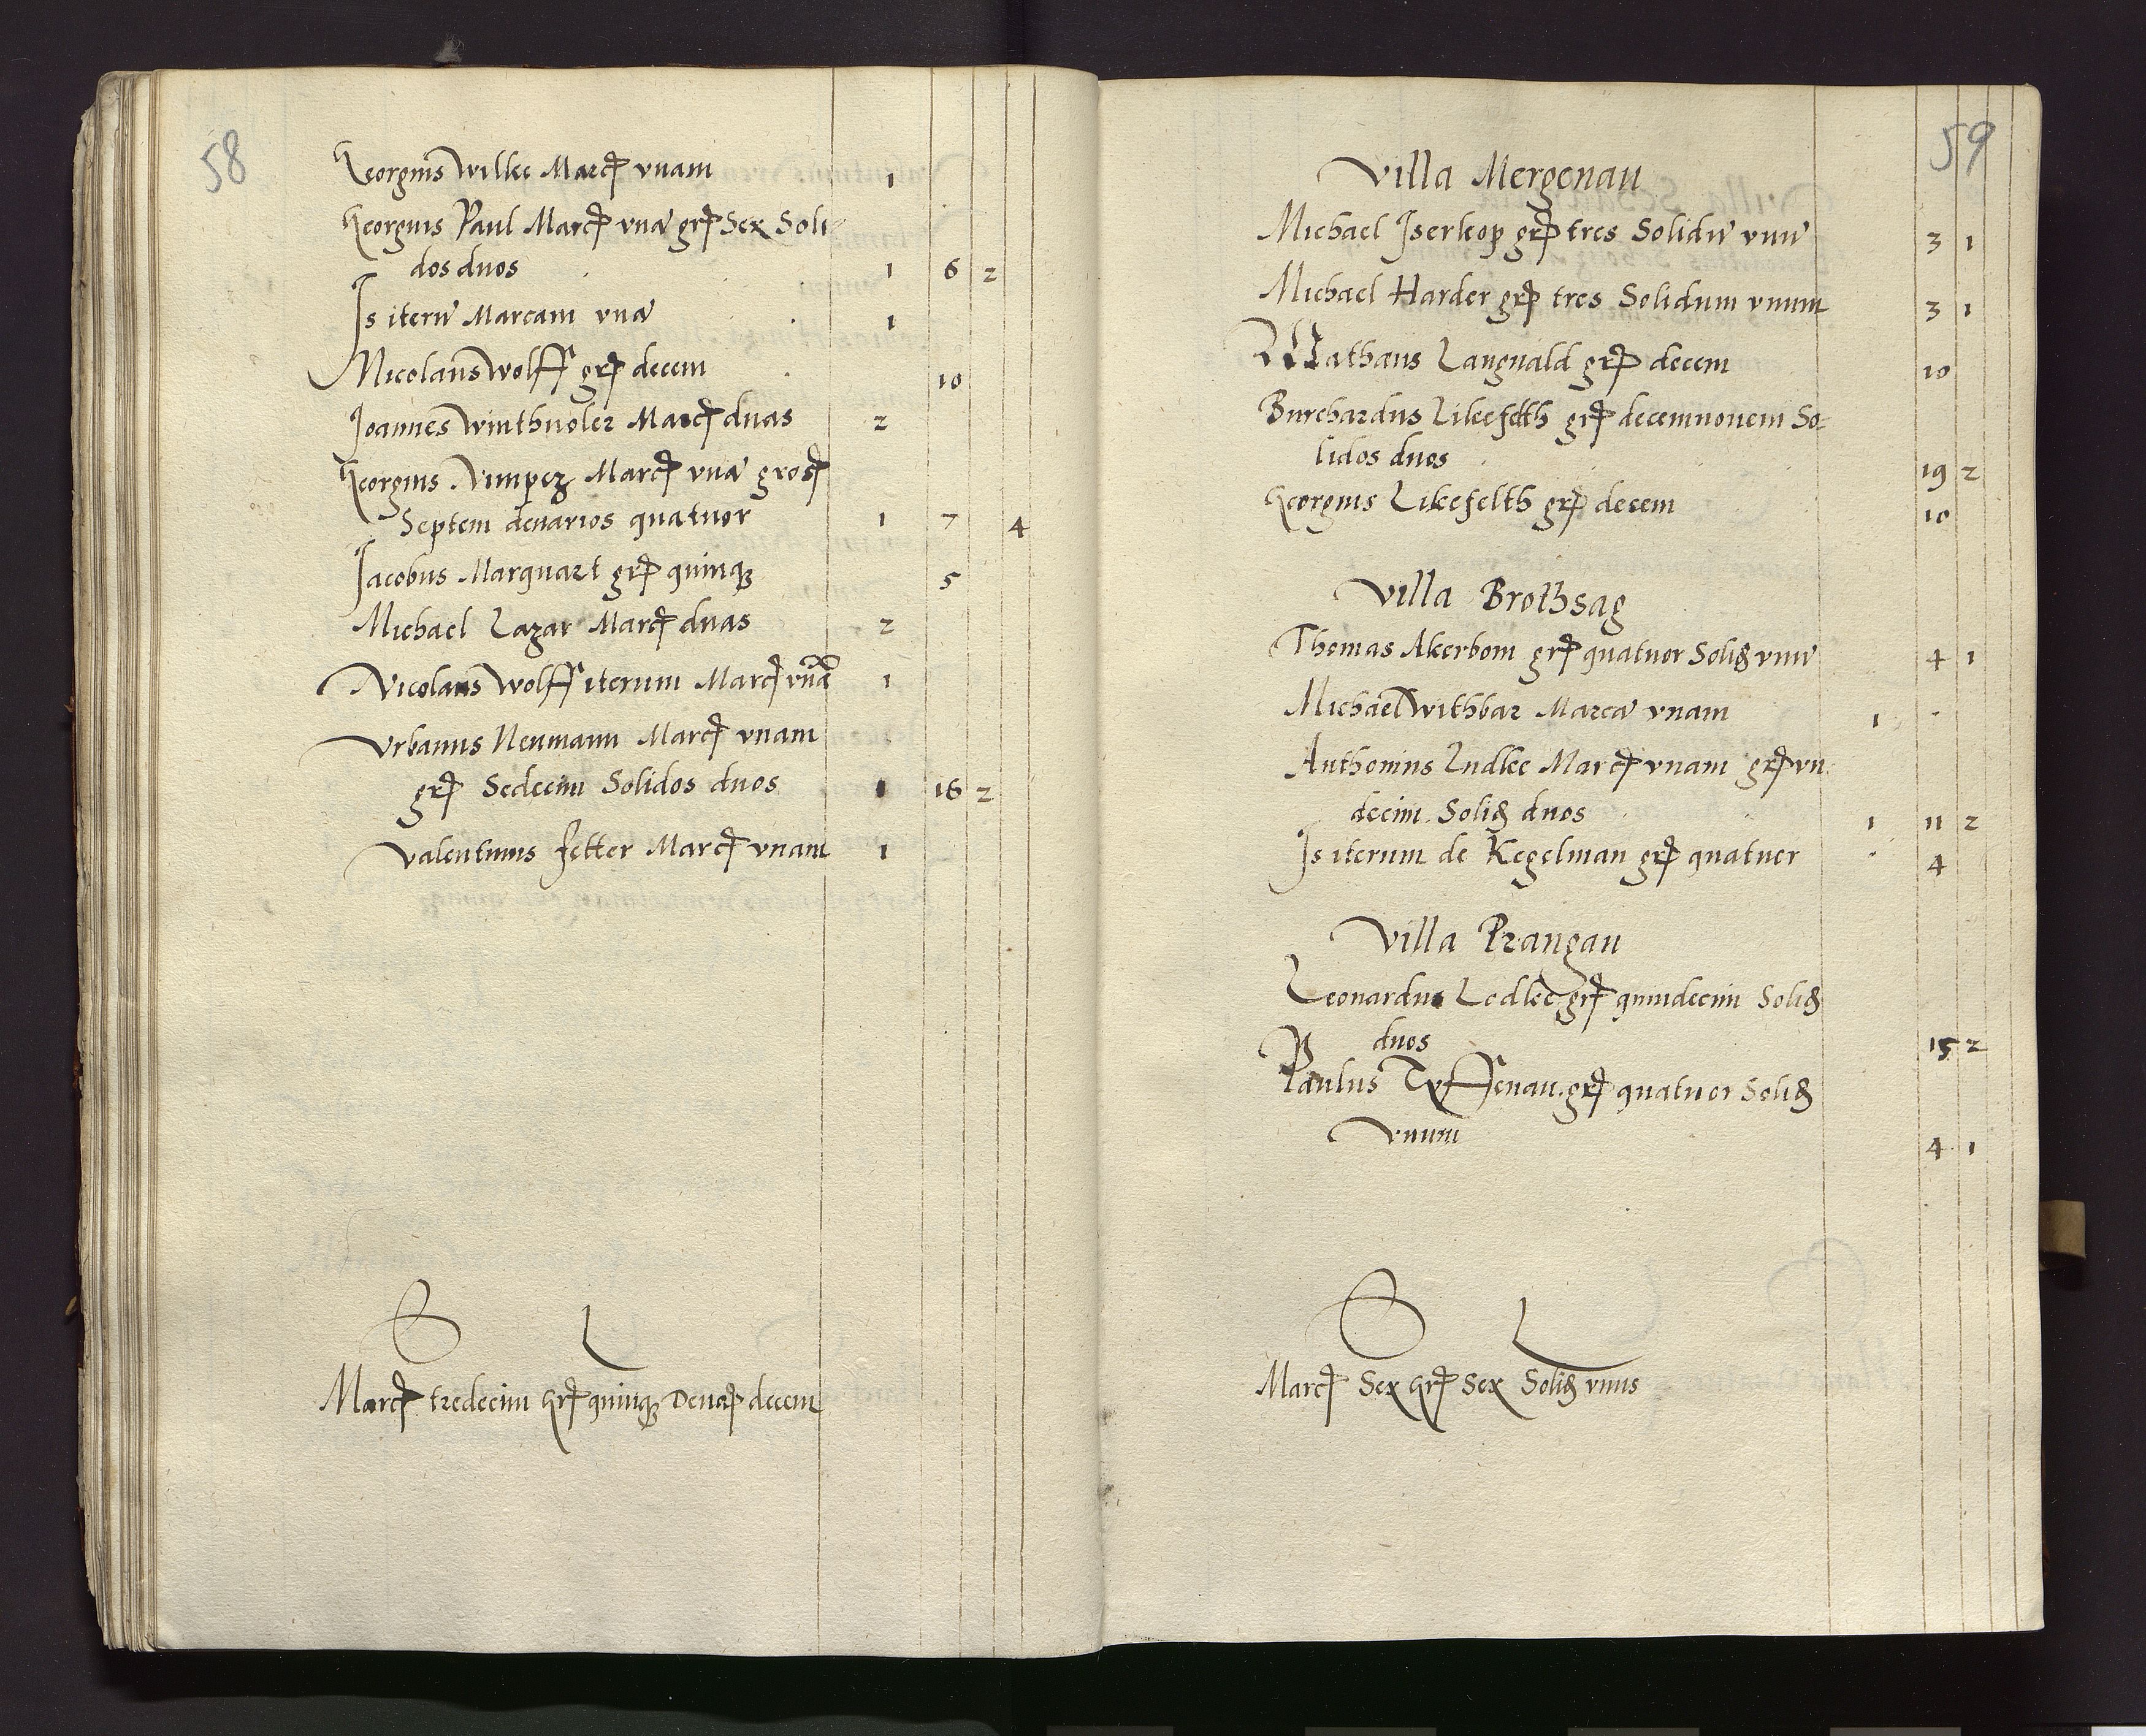 58
Georgius Wilke Marc vnam 1
Georgius Paul Marc vna gr Sex Soli-
dos duos 1 6 2
Is iteru Marcam vna 1
Nicolaus Wolff gr decem 10
Joannes Winthuoler Marc duas 2
Georgius Nimpcz Marc vna gros
Septem denarios quatuor 1 7 4
Jacobus Marquart gr quinq 5
Michael Lazar Marc duas 2
Nicolaus Wolff iterum Marc vna 1
Vrbanus Neumann Marc vnam
gr Sedecim Solidos duos 1 16 2
Valentinus Fetter Marc vnam 1
S L
Marc tredecim gr quinq Denar decem
59
Villa Mergenau
Michael Iserkop gr tres Solidu vnu 3 1
Michael Harder gr tres Solidum vnum 3 1
Mathaus Langnald gr decem 10
Burchardus Likefelth gr decemnouem So-
lidos duos 19 2
Georgius Likefelth gr decem 10
Villa Brothsag
Thomas Akerbom gr quatuor Solid vnu 4 1
Michael Withbar Marca vnam 1
Anthonius Ludke Marc vnam gr vn-
decim Solid duos 1 11 2
Is iterum de Kegelman gr quatuor 4
Villa Prangau
Leonardus Ledke gr quindecim Solid
duos 15 2
Paulus Tyffenau gr quatuor Solid
vnum 4 1
S L
Marc Sex gr Sex Solid vnus